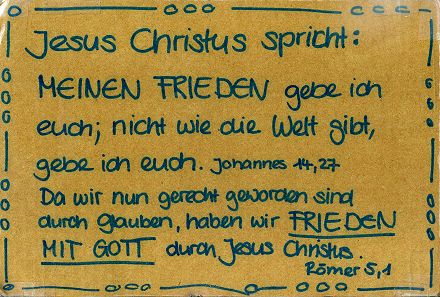 Jesus Christus spricht:
MEINEN FRIEDEN gebe ich
euch; nicht wie die Welt gibt,
gebe ich euch. Johannes 14,27
Da wir nun gerecht geworden sind
durch Glauben, haben wir FRIEDEN
MIT GOTT durch Jesus Christus.
Römer 5,1